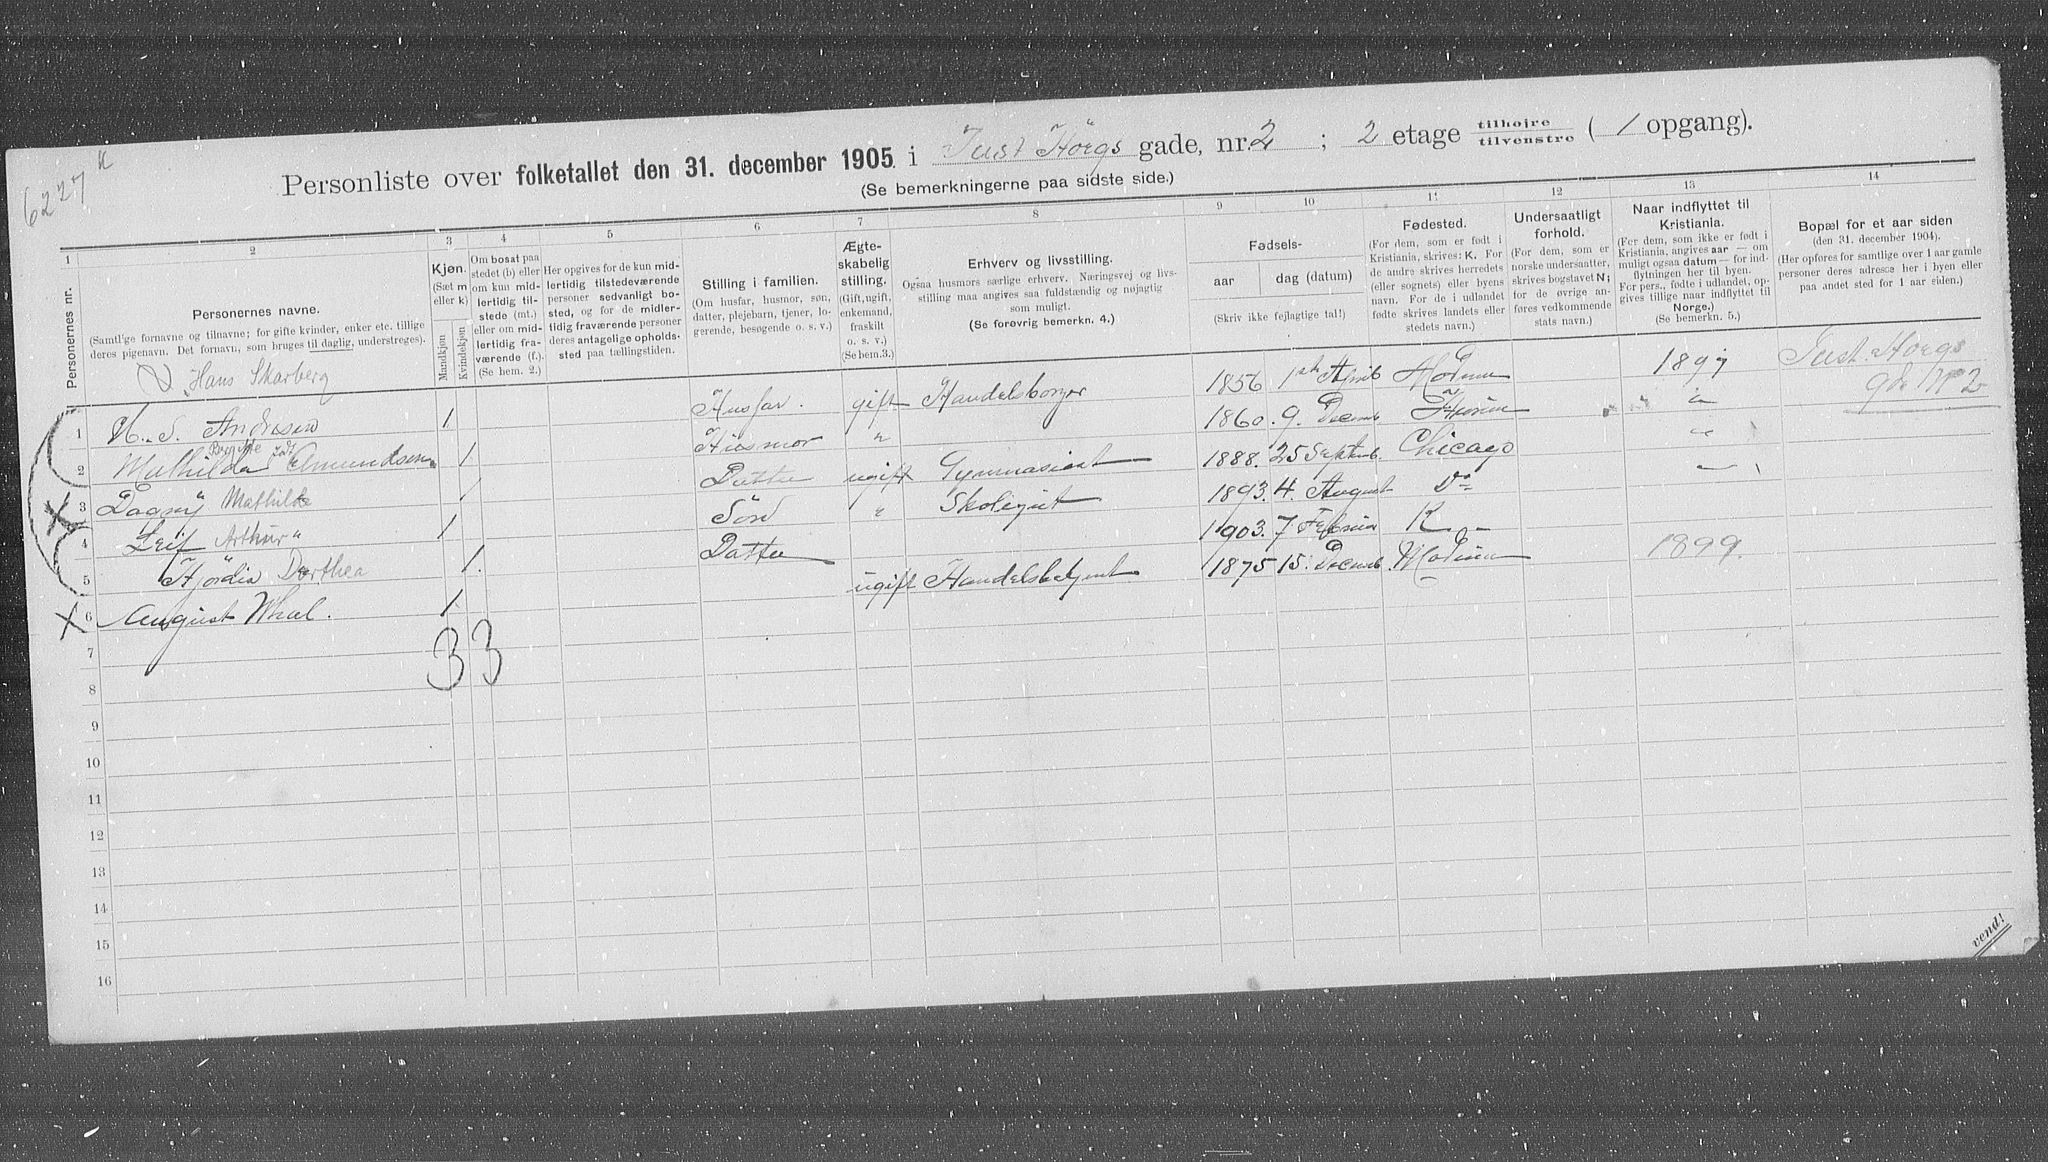 6227 K
Personliste over folketallet den 31. december 1905 i Just Høegs gade, nr. 2 ; 2 etage tilhoire tilvenstre ( 1 opgang).
(Se bemerkningerne paa sidste side.)
1 2 3 4 5 6 7 8 9 10 11 12 13 14
Personernes nr.
Personernes navne.
(Samtlige fornavne og tilnavne; for gifte kvinder, enker etc. tillige
deres pigenavn. Det fornavn, som bruges til daglig, understreges).
Kjøn.
(Sæt m
eller k)
Mandkjøn
Kvindekjøn
Om bosat paa
stedet (b) eller
om kun mid-
lertidig til-
stede (mt.)
eller om mid-
lertidig fra-
værende (f.)
(Se bem. 2.)
Her opgives for de kun mid-
lertidig tilstedeværende
personer sedvanligt bo-
sted, og for de midler-
tidig fraværende personer
deres antagelige opholds-
sted paa tællingstiden.
Stilling i familien.
(Om husfar, husmor, søn,
datter, plejebarn, tjener, lo-
gerende, besøgende o. s. v.)
Ægte-
skabelig
stilling.
(Gift, ugift,
enkemand,
fraskilt
o. s. v.)
(Se bem. 3.)
Erhverv og livsstilling.
Ogsaa husmors særlige erhverv. Næringsvej og livs-
stilling maa angives saa fuldstændig og nøjagtig
som muligt.
(Se forøvrig bemerkn. 4.)
Fødsels-
aar dag (datum)
(Skriv ikke fejlagtige tal!)
Fødested.
(For dem, som er født i
Kristiania, skrives: K. For
de andre skrives herredets
(eller sognets) eller byens
navn. For de i udlandet
fødte skrives landets eller
stedets navn.)
Undersaatligt
forhold.
(For dem, som er
norske undersaatter,
skrives bogstavet N;
for de øvrige an-
føres vedkommende
stats navn.)
Naar indflyttet til
Kristiania.
(For dem, som ikke er født i
Kristiania, angives aar — om
muligt ogsaa datum — for ind-
flytningen her til byen.
For pers., fødte i udlandet, op-
gives tillige naar indflyttet til
Norge.)
(Se bemerkn. 5.)
Bopæl for et aar siden
(den 31. december 1904).
(Her opføres for samtlige over 1 aar gamle
personer deres adresse her i byen eller
paa andet sted for 1 aar siden.)
Hans Skarberg
1 H. S. Andresen 1 Husfar. gift Handelsborger 1856 1ste April Modum 1897 Just Høegs gde No 2
2 Mathilde Birgitte født Amundsen 1 Husmor " 1860. 9. Decmb Hurum "
3 Dagny Mathilde 1 Datter ugift Gymnasiast 1888. 25 Septmb. Chicago "
4 Leif Arthur " 1 Søn " Skolegut 1893. 4. August Do
5 Hjördis Dorthea 1. Datter 1903. 7 Februar K.
6 August Hval. 1 ugift Handelsbetjent 1875 15. Decmb. Modum 1899.
7 3 3
8
9
10
11
12
13
14
15
16
vend!